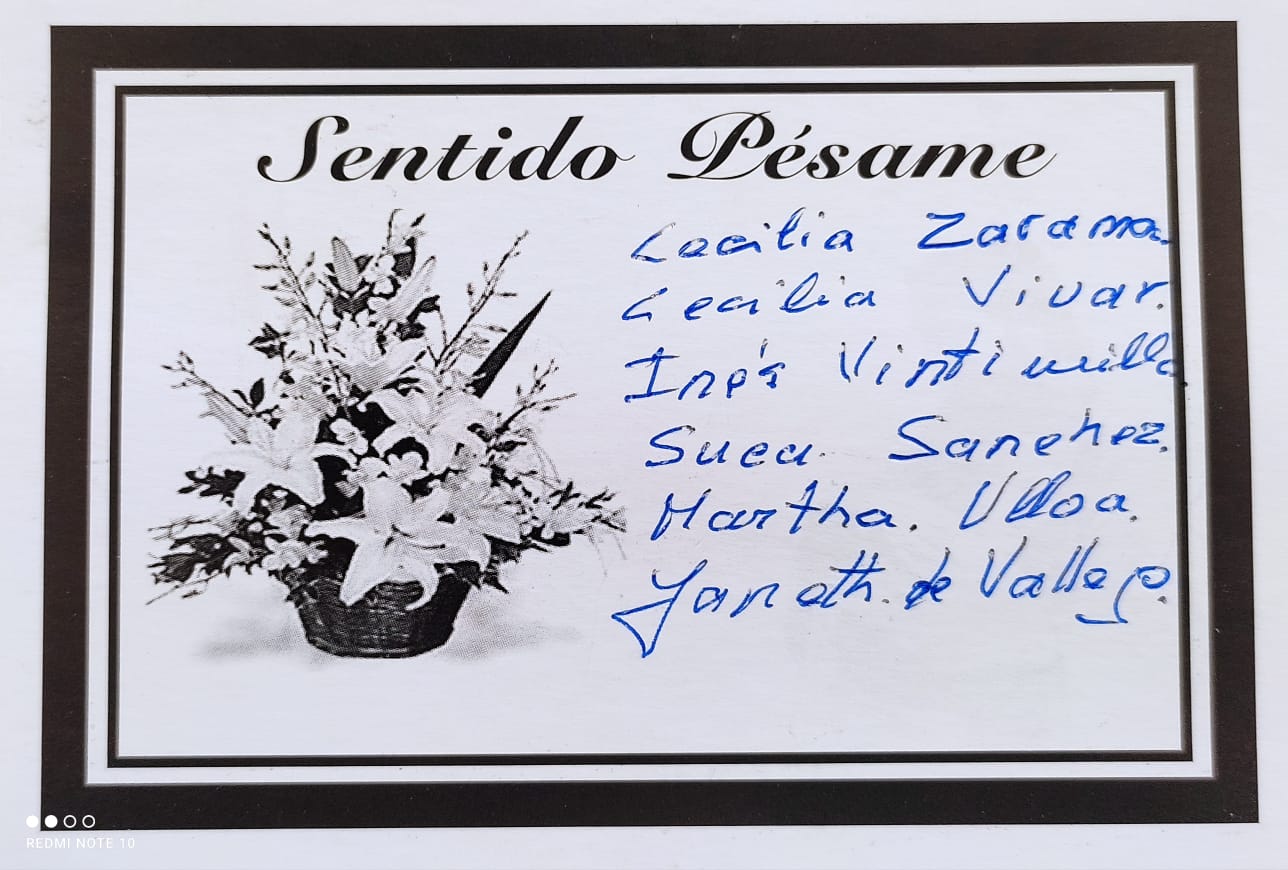 Sentido Pésame
Cecilia Zarama.
Cecilia Vivar.
Inés Vintimilla
Suca Sanchez.
Martha. Ulloa.
Janeth. de Vallejo.
REDMI NOTE 10